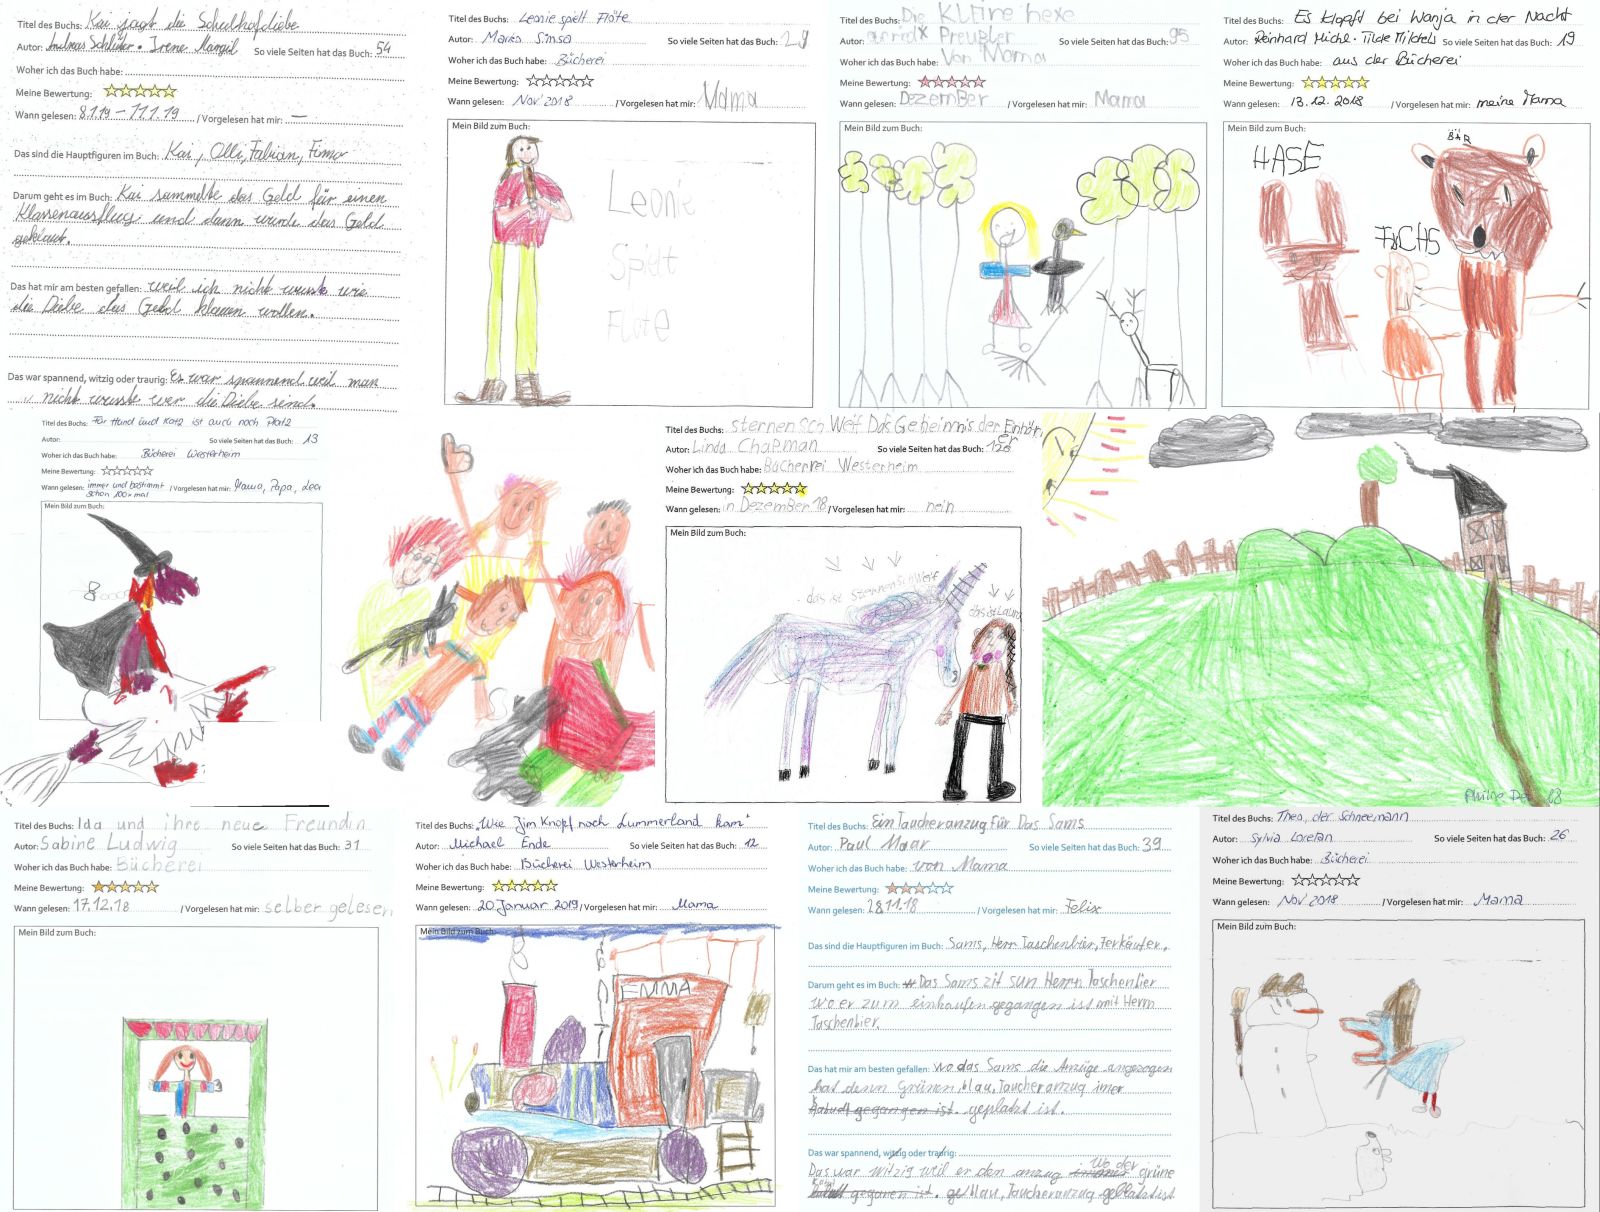 Titel des Buchs: Kai jagt die Schulhofdiebe
Autor: Andreas Schlüter · Irene Margil So viele Seiten hat das Buch: 54
Woher ich das Buch habe:
Meine Bewertung:
Wann gelesen: 8.1.19 – 11.1.19 / Vorgelesen hat mir: —
Das sind die Hauptfiguren im Buch: Kai, Olli, Fabian,
Darum geht es im Buch: Kai sammelte das Geld für einen
Klassenausflug und dann wurde das Geld
geklaut.
Das hat mir am besten gefallen: weil ich nicht wusste wie
die Diebe das Geld klauen wollen.
Das war spannend, witzig oder traurig: Es war spannend weil man
nicht wusste wer die Diebe sind.
Titel des Buchs: Leonie spielt Flöte
Autor: Marko Simsa So viele Seiten hat das Buch: 29
Woher ich das Buch habe: Bücherei
Meine Bewertung:
Wann gelesen: Nov 2018 / Vorgelesen hat mir: Mama
Mein Bild zum Buch:
Leonie
Spielt
Flöte
Titel des Buchs: Die kleine hexe
Autor: Preußler So viele Seiten hat das Buch: 95
Woher ich das Buch habe: Von Mama
Meine Bewertung:
Wann gelesen: Dezember / Vorgelesen hat mir: Mama
Mein Bild zum Buch:
Titel des Buchs: Es klopft bei Wanja in der Nacht
Autor: Reinhard Michl · Tilde Michels So viele Seiten hat das Buch: 19
Woher ich das Buch habe: aus der Bücherei
Meine Bewertung:
Wann gelesen: 13.12.2018 / Vorgelesen hat mir: meine Mama
Mein Bild zum Buch:
HASE
BÄR
FUCHS
Titel des Buchs: Für Hund und Katz ist auch noch Platz
Autor: So viele Seiten hat das Buch: 13
Woher ich das Buch habe: Bücherei Westerheim
Meine Bewertung:
Wann gelesen: immer und bestimmt schon 100x mal / Vorgelesen hat mir: Mama, Papa, Lea
Mein Bild zum Buch:
Titel des Buchs: sternenschweif Das Geheimnis der Einhörner
Autor: Linda Chapman So viele Seiten hat das Buch: 128
Woher ich das Buch habe: Bücherei Westerheim
Meine Bewertung:
Wann gelesen: in Dezember 18 / Vorgelesen hat mir: nein
Mein Bild zum Buch:
das ist Sternenschweif
das ist Laura
Titel des Buchs: Ida und ihre neue Freundin
Autor: Sabine Ludwig So viele Seiten hat das Buch: 31
Woher ich das Buch habe: Bücherei
Meine Bewertung:
Wann gelesen: 17.12.18 / Vorgelesen hat mir: selber gelesen
Mein Bild zum Buch:
Titel des Buchs: "Wie Jim Knopf nach Lummerland kam"
Autor: Michael Ende So viele Seiten hat das Buch: 12
Woher ich das Buch habe: Bücherei Westerheim
Meine Bewertung:
Wann gelesen: 20 Januar 2019 / Vorgelesen hat mir: Mama
Mein Bild zum Buch:
EMMA
Titel des Buchs: Ein Taucheranzug für Das Sams
Autor: Paul Maar So viele Seiten hat das Buch: 39
Woher ich das Buch habe: von Mama
Meine Bewertung:
Wann gelesen: 28.11.18 / Vorgelesen hat mir: Felix
Das sind die Hauptfiguren im Buch: Sams, Herr Taschenbier, Ferkäufer.
Darum geht es im Buch: Das Sams zit sun Herrn Taschenbier
wo er zum einkaufen gegangen ist mit Herrn
Taschenbier.
Das hat mir am besten gefallen: wo das Sams die Anzüge angezogen
hat denn Grünen, blau, Taucheranzug imer
gegangen ist. geplatzt ist.
Das war spannend, witzig oder traurig:
Das war witzig weil er den anzug wo der grüne
gegangen ist. blau, Taucheranzug geplatzt ist
Titel des Buchs: Theo, der Schneemann
Autor: Sylvia Loretan So viele Seiten hat das Buch: 26
Woher ich das Buch habe: Bücherei
Meine Bewertung:
Wann gelesen: Nov 2018 / Vorgelesen hat mir: Mama
Mein Bild zum Buch: